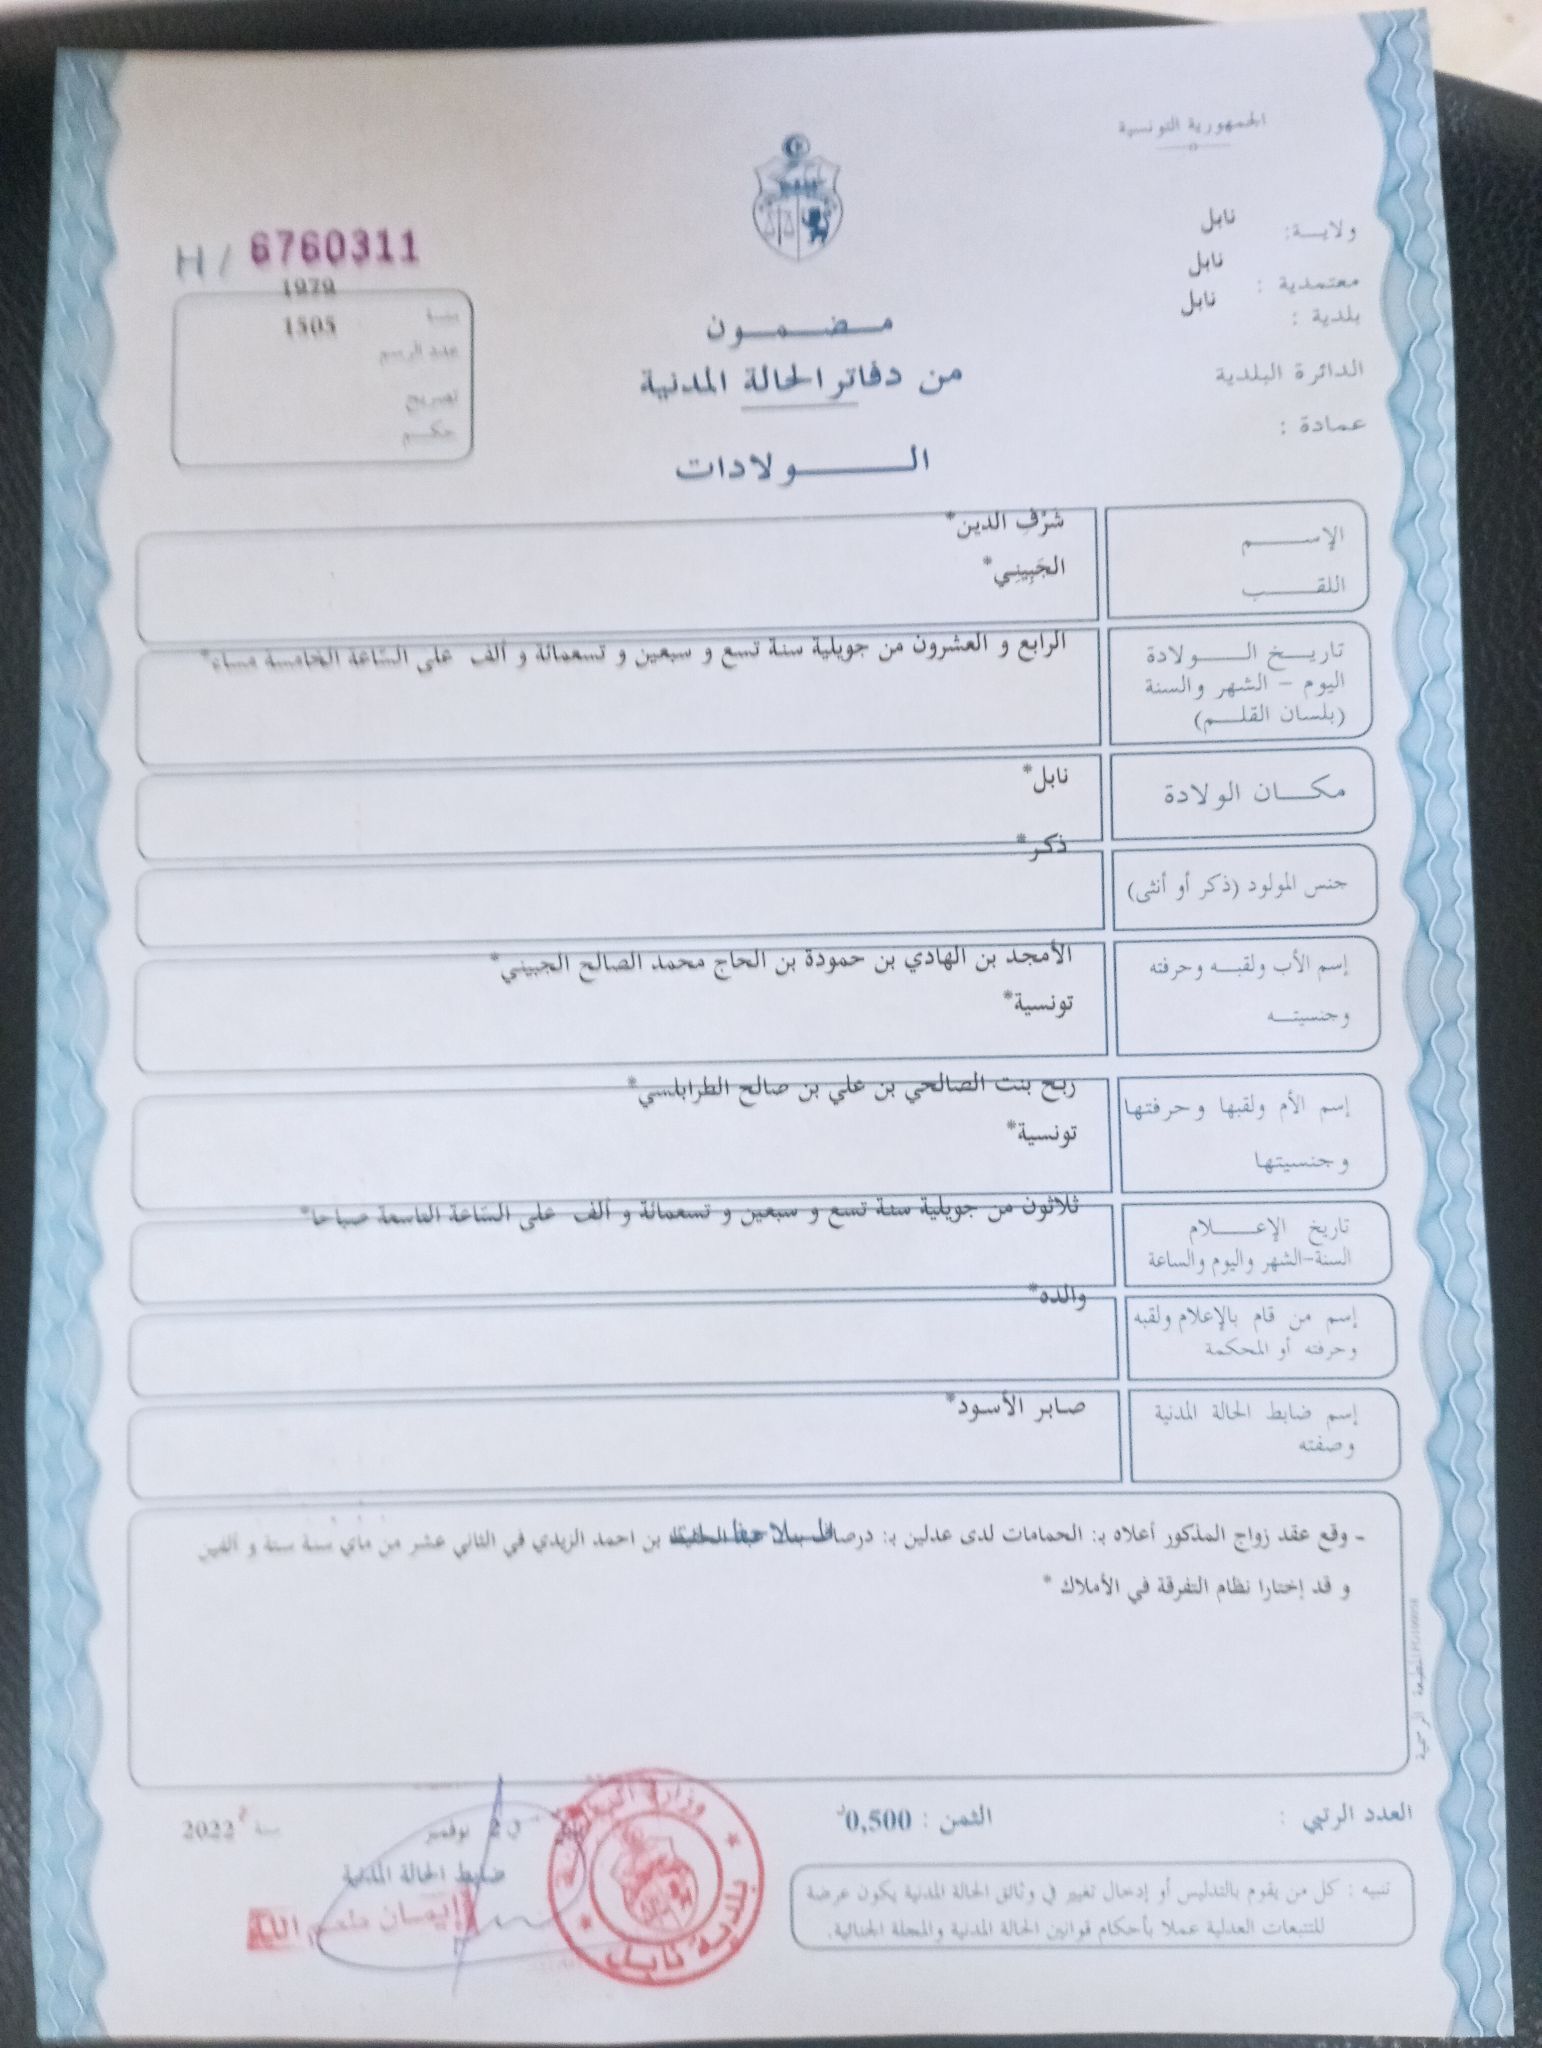 الجمهورية التونسية
ولايـــة: نابل
معتمدية : نابل
بلدية : نابل
الدائرة البلدية
عمادة :
H / 6760311
سنة 1979
عدد الرسم 1505
تصريح
حكـم
مـضـمـون
من دفاتر الحالة المدنية
الـولادات
الإســـم شَرْفِ الدين*
اللقـــب الجَبِينِي*
تاريـخ الـــولادة الرابع و العشرون من جويلية سنة تسع و سبعين و تسعمائة و ألف على السّاعة الخامسة مساء*
اليوم – الشهر والسنة
(بلسان القلـم)
مكـــان الولادة نابل*
جنس المولود (ذكر أو أنثى) ذكر*
إسم الأب ولقبـه وحرفته الأمجد بن الهادي بن حمودة بن الحاج محمد الصالح الجبيني*
وجنسيتـه تونسية*
إسم الأم ولقبها وحرفتها ربح بنت الصالحي بن علي بن صالح الطرابلسي*
وجنسيتها تونسية*
تاريخ الإعـــلام ثلاثون من جويلية سنة تسع و سبعين و تسعمائة و ألف على السّاعة التاسعة صباحا*
السنة-الشهر واليوم والساعة
إسم من قام بالإعلام ولقبه والده*
وحرفته أو المحكمة
إسم ضابط الحالة المدنية صابر الأسود*
وصفته
ـ وقع عقد زواج المذكور أعلاه بـ: الحمامات لدى عدلين بـ: درصاف بن احمد الزيدي في الثاني عشر من ماي سنة ستة و ألفين
و قد إختارا نظام التفرقة في الأملاك *
المطبعة الرسمية
العدد الرتبي :
الثمن : 0,500د
نوفمبر سنة 2022
ضابط الحالة المدنية
إيمان
بلدية نابل
تنبيه : كل من يقوم بالتدليس أو إدخال تغيير في وثائق الحالة المدنية يكون عرضة
للتتبعات العدلية عملا بأحكام قوانين الحالة المدنية والمجلة الجنائية.